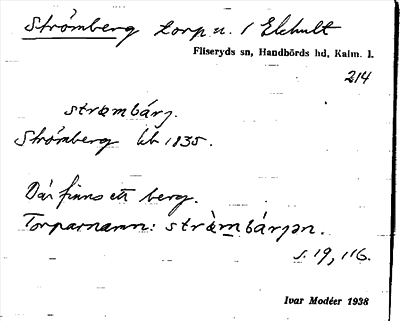 Strömberg torp u. / Ekhult
Fliseryds sn, Handbörds hd, Kalm. l.
214
strømbárj.
Strömberg kb 1835.
Där finns ett berg.
Torparnamn: strø̀mbárjən.
s. 19, 116.
Ivar Modéer 1938